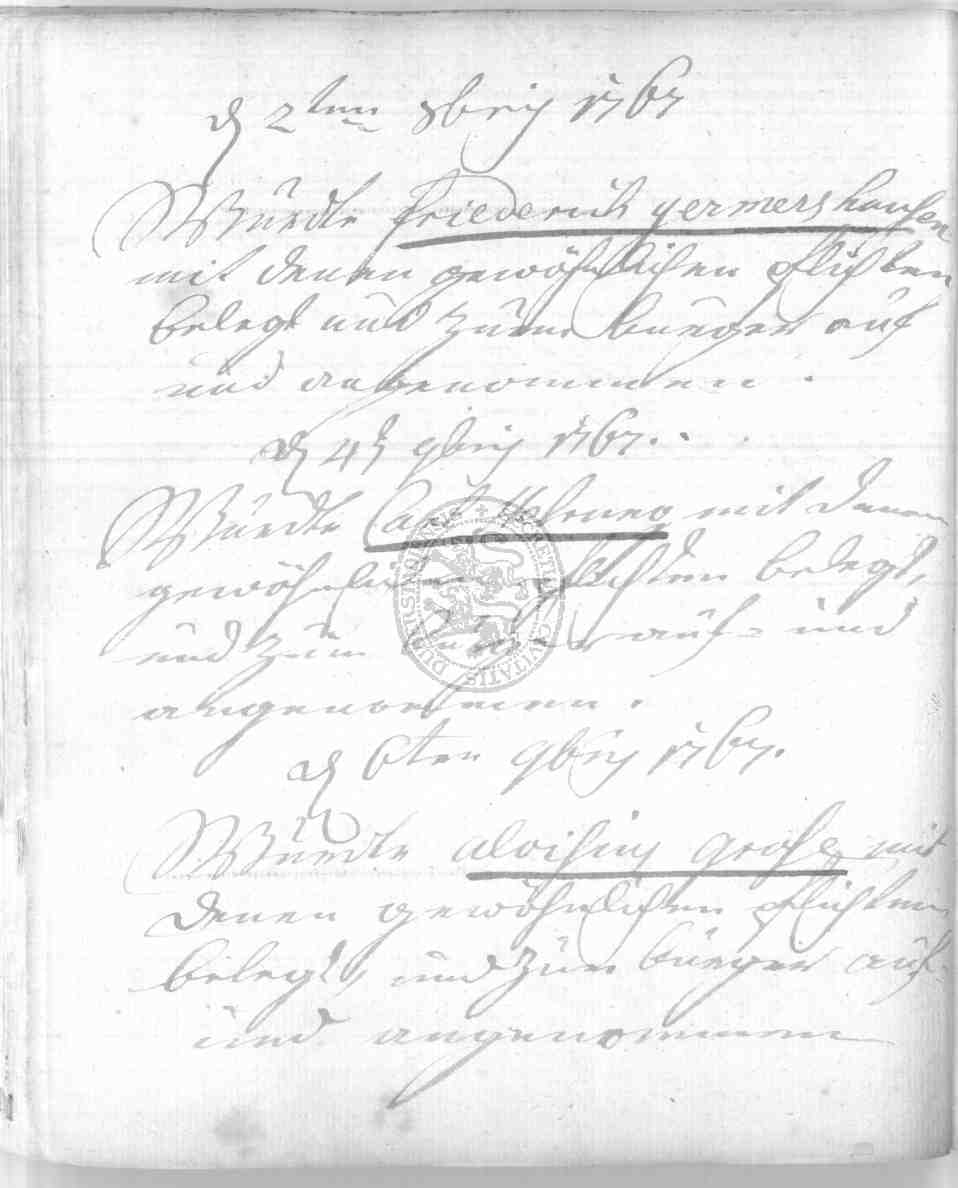 d 2ten 8bris 1767
Würdte friederich germershausen
mit denen gewöhnlichen pflichten
belegt und zum burger auf
und angenommen.
d 4t 9bris 1767.
Würdte mit denen
gewöhnlichen pflichten belegt,
und zum burger auf- und
angenommen.
d 6ten 9bris 1767.
Würdte aloisius grose mit
denen gewöhnlichen pflichten
belegt, und zum burger auf-
und angenommen